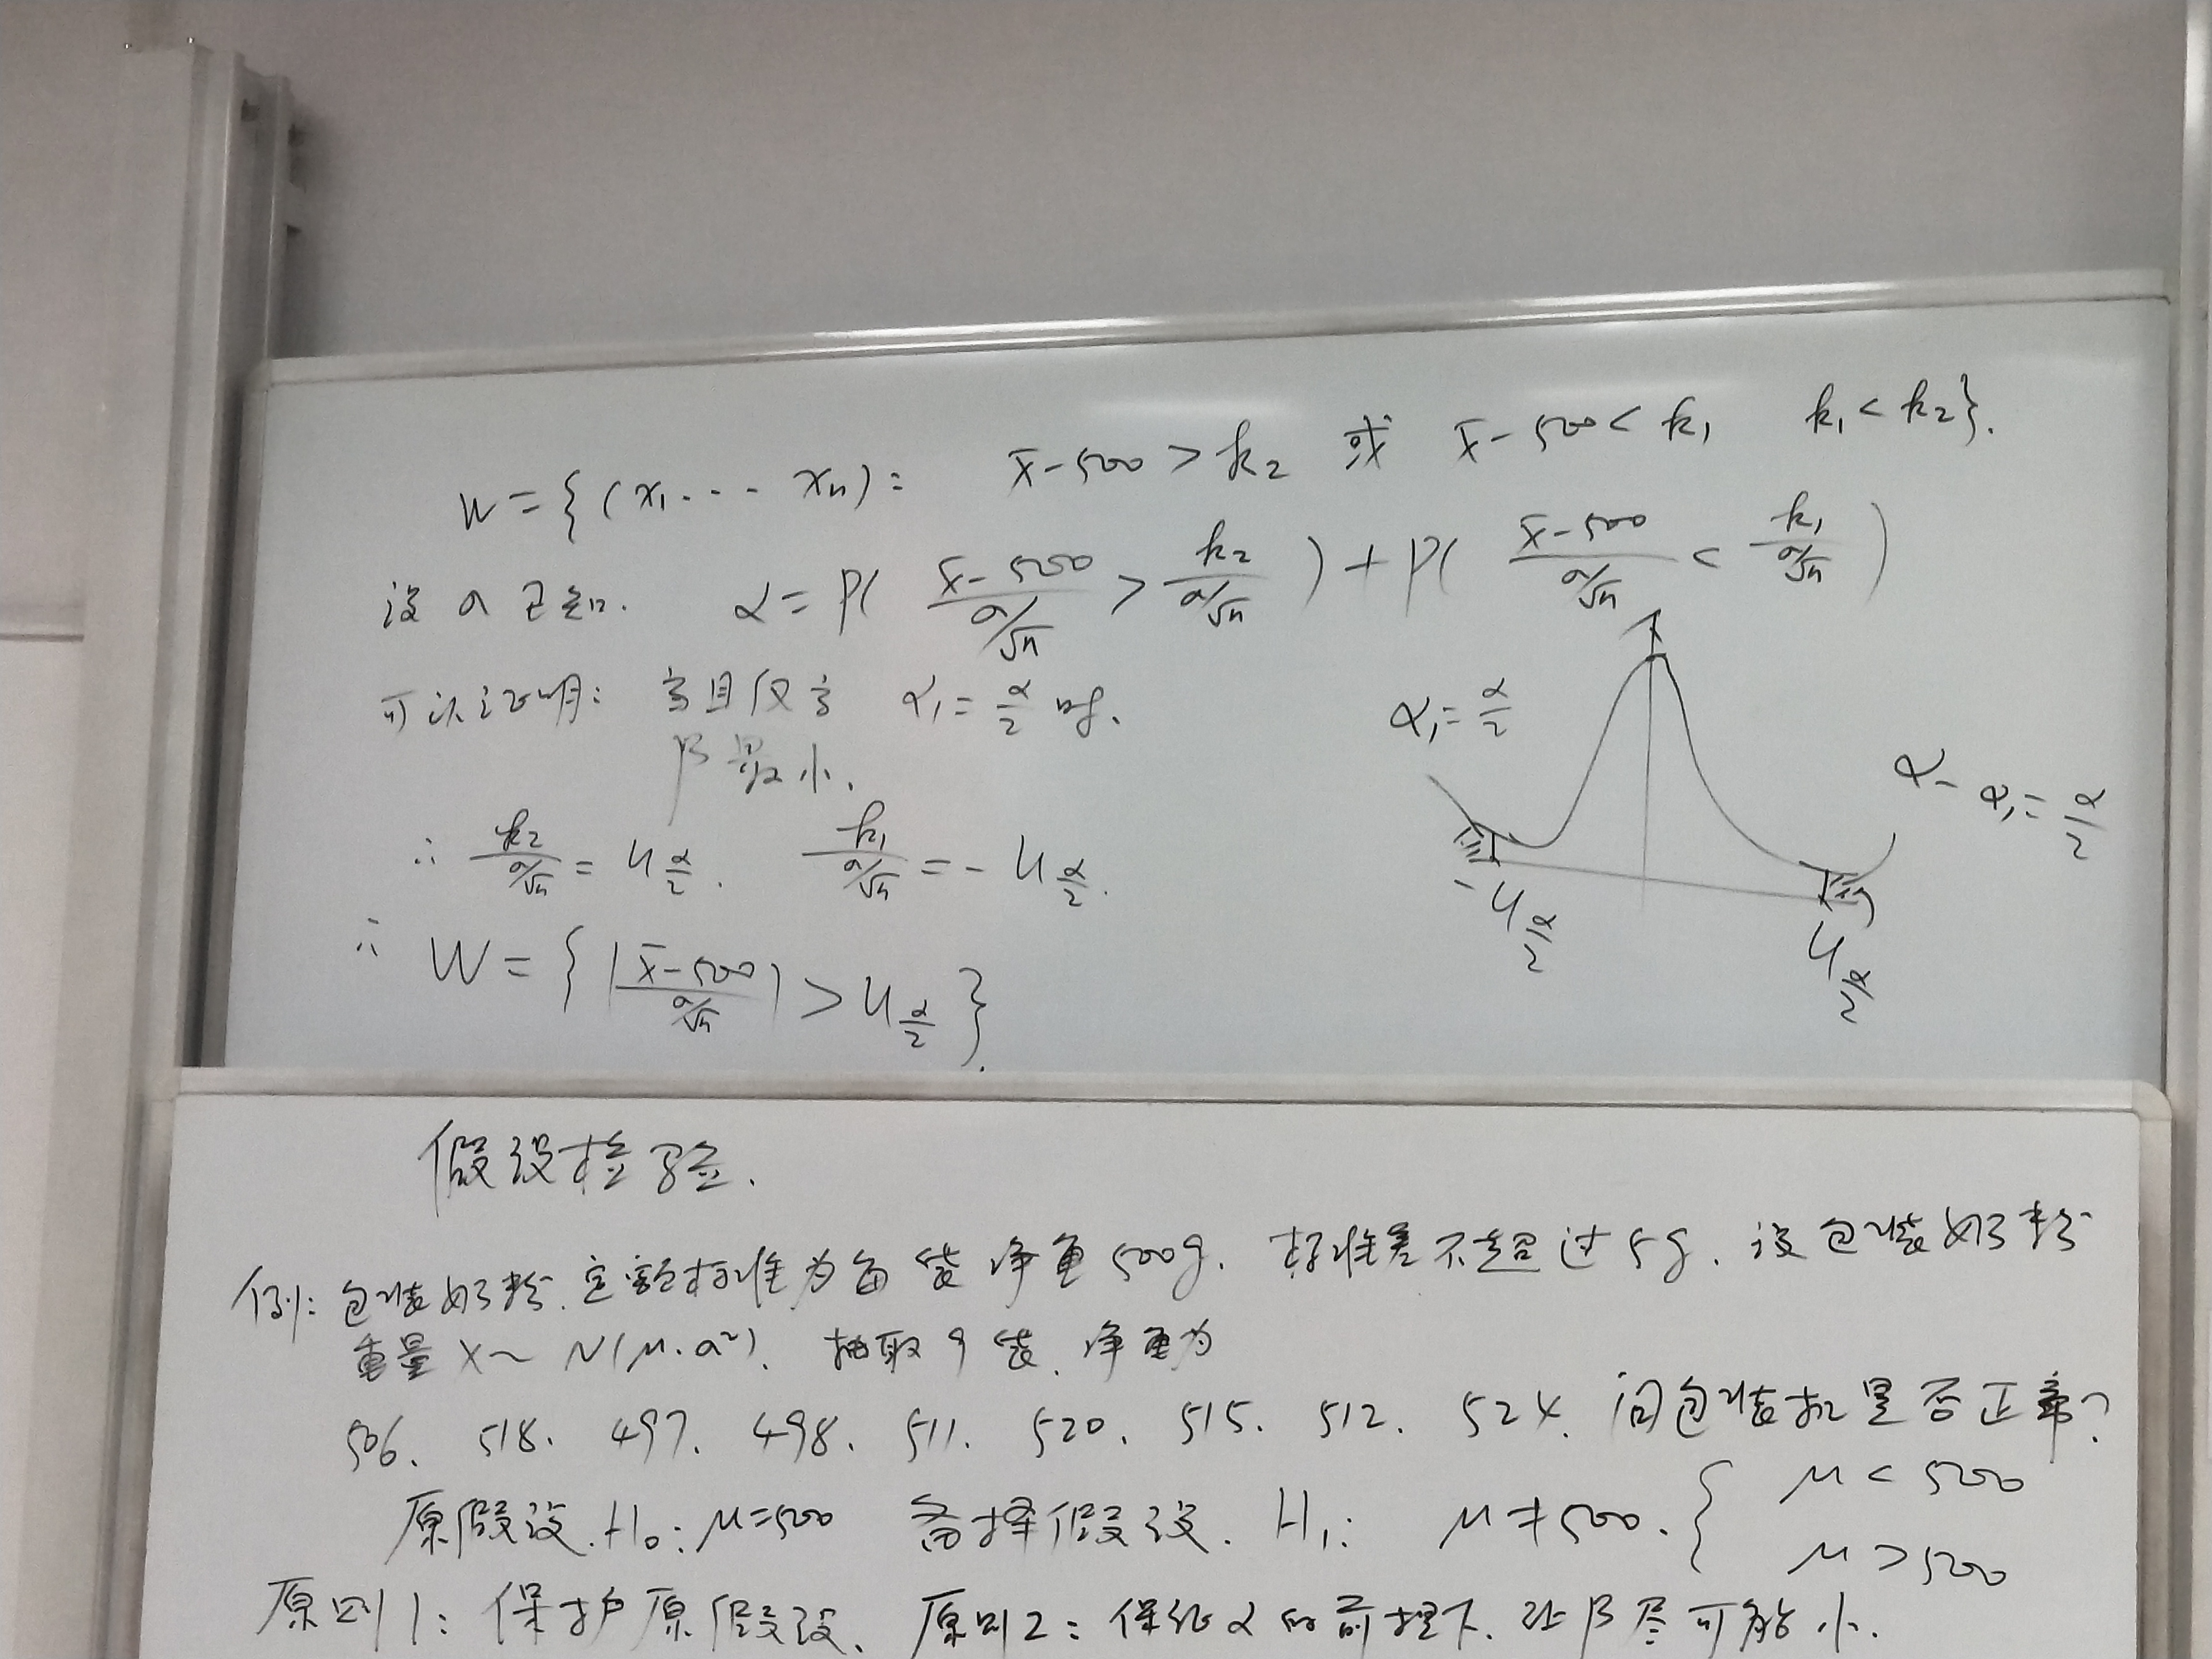 W={(x₁...xₙ): x̄-500>k₂ 或 x̄-500<k₁ k₁<k₂}.
设σ已知. α=P( (x̄-500)/(σ/√n) > k₂/(σ/√n) )+P( (x̄-500)/(σ/√n) < k₁/(σ/√n) )
可以证明: 当且仅当 α₁=α/2 时.
β最小.
α₁=α/2
α-α₁=α/2
∴ k₂/(σ/√n) = u_{α/2}. k₁/(σ/√n) = -u_{α/2}.
-u_{α/2}
u_{α/2}
∴ W={ |(x̄-500)/(σ/√n)| > u_{α/2} }.
假设检验.
例: 包装奶粉. 定额标准为每袋净重500g. 标准差不超过5g. 设包装奶粉
重量 X~N(μ.σ²). 抽取9袋. 净重为
506. 518. 497. 498. 511. 520. 515. 512. 524. 问包装机是否正常?
原假设. H₀: μ=500 备择假设. H₁: μ≠500. { μ<500
μ>500
原则1: 保护原假设. 原则2: 保证α的前提下. 让β尽可能小.